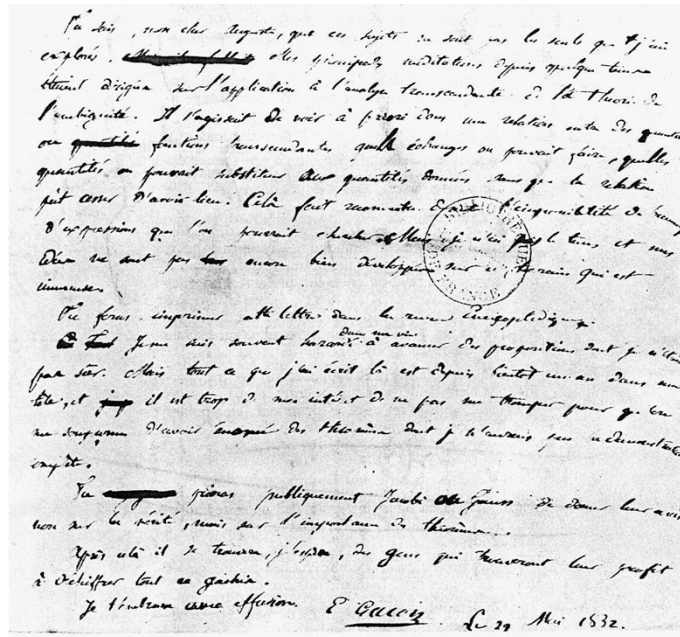 Tu sais, mon cher Auguste, que ces sujets ne sont pas les seuls que j'aie
explorés. Mes principales méditations depuis quelque temps
étaient dirigées sur l'application à l'analyse transcendante de la théorie de
l'ambiguité. Il s'agissait de voir à priori dans une relation entre des quantités
ou fonctions transcendantes quels échanges on pouvait faire, quelles
quantités on pouvait substituer aux quantités données sans que la relation
pût cesser d'avoir lieu. Cela fait reconnaitre l'impossibilité de beaucoup
d'expressions que l'on pourrait chercher. Mais je n'ai pas le tems et mes
idées ne sont pas encore bien développées sur ce terrain qui est
immense.
Tu feras imprimer cette lettre dans la revue encyclopédique.
Je me suis souvent hasardé dans ma vie à avancer des propositions dont je n'étais
pas sûr. Mais tout ce que j'ai écrit là est depuis bientôt un an dans ma
tête, et il est trop de mon intérêt de ne pas me tromper pour qu'on
me soupçonne d'avoir énoncé des théorèmes dont je n'aurais pas la démonstration
complète.
Tu prieras publiquement Jacobi ou Gauss de donner leur avis
non sur la vérité, mais sur l'importance des théorèmes.
Après cela il se trouvera, j'espère, des gens qui trouveront leur profit
à déchiffrer tout ce gachis.
Je t'embrasse avec effusion. E Galois Le 29 Mai 1832.